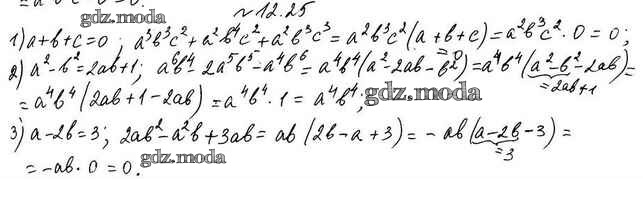 gdz.moda
№12.25
1) a+b+c=0; a³b³c²+a²b⁴c²+a²b³c³=a²b³c²(a+b+c)=a²b³c²·0=0;
2) a²-b²=2ab+1; a⁶b⁴-2a⁵b⁵-a⁴b⁶=a⁴b⁴(a²-2ab-b²)=a⁴b⁴(a²-b²-2ab)=
=2ab+1
=a⁴b⁴(2ab+1-2ab)=a⁴b⁴·1=a⁴b⁴; gdz.moda
3) a-2b=3; 2ab²-a²b+3ab=ab(2b-a+3)=-ab(a-2b-3)=
=3
=-ab·0=0. gdz.moda